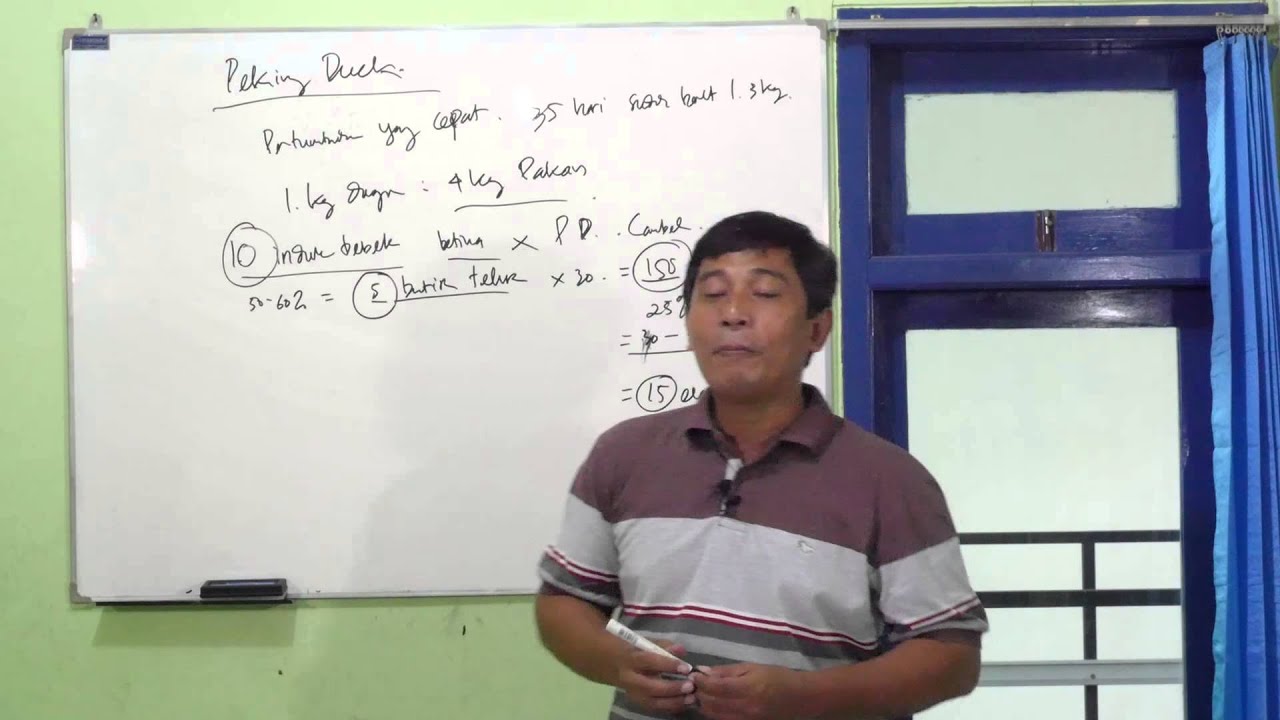 Peking Duck.
Pertumbuhan yang cepat. 35 hari berat 1.3 kg.
1. kg daging : 4 kg Pakan
10 induk bebek betina × P D. . Cambel.
50-60% = 5 butir telur × 30. = 150
25%
= 30 -
= 15